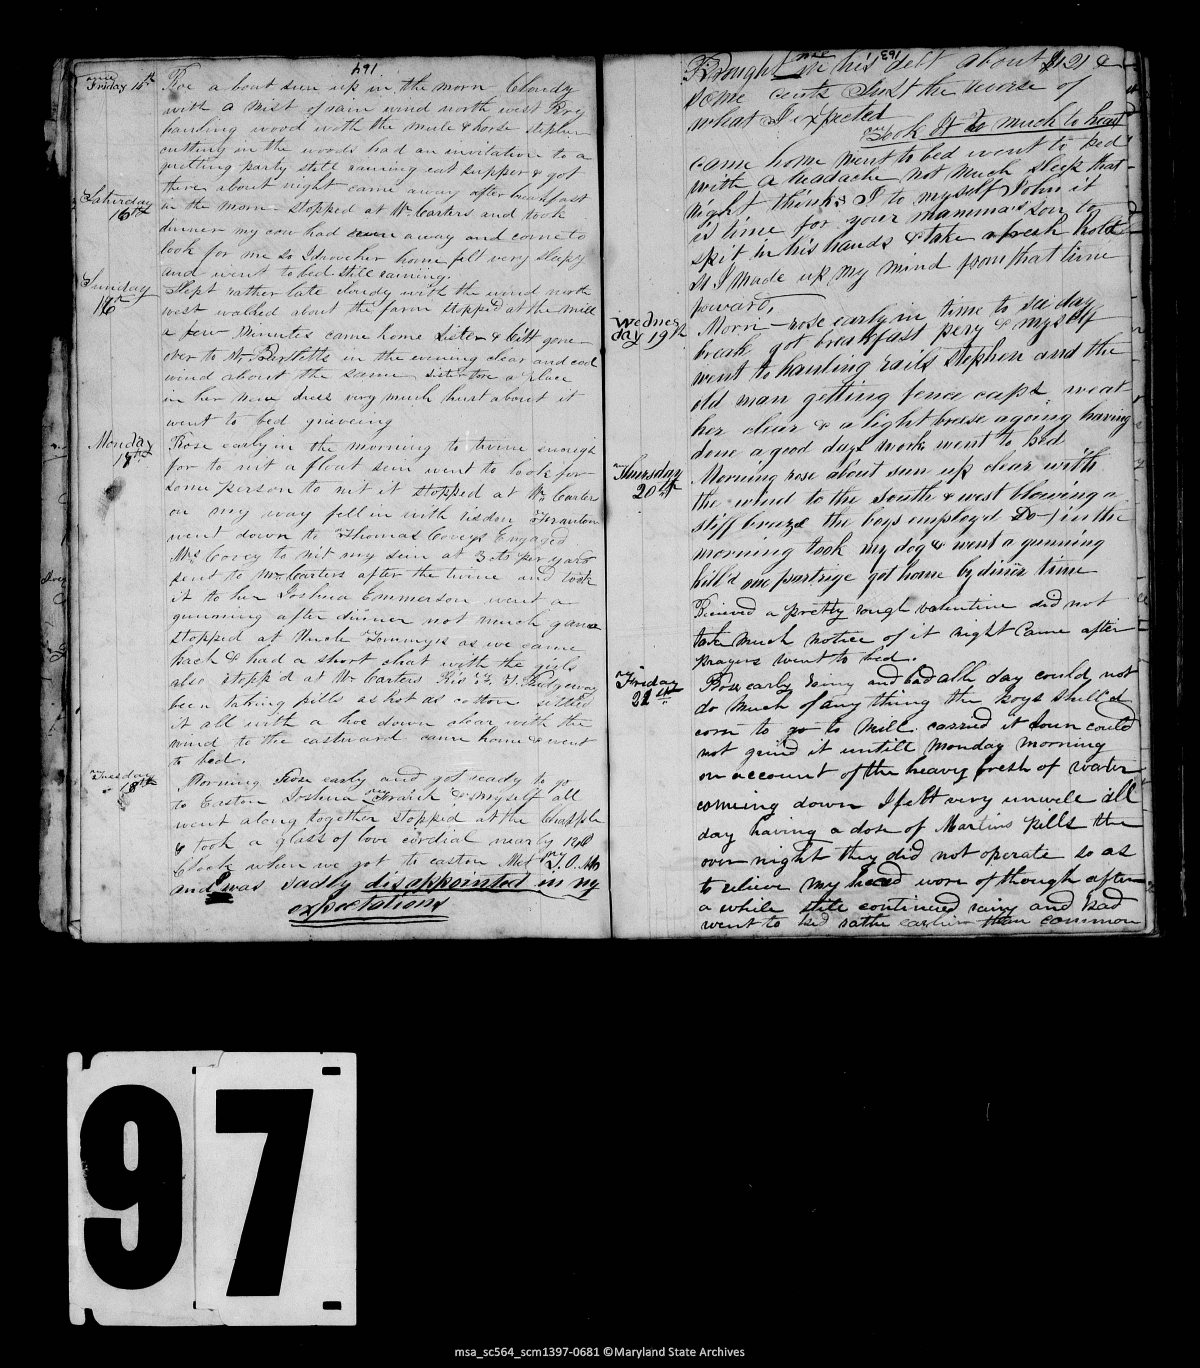 164
Friday 14th
Rose a bout sun up in the morn Cloudy
with a mist of rain wind north west Pery
hauling wood with the mule & horse stephen
cutting in the woods had an invitation to a
quilting party still raining eat supper & got
there about night came away after breakfast
Saturday 15th
in the morn Stopped at Wm Carters and took
dinner my cow had away and come to
look for me so I drove her home felt very sleepy
and went to bed still raining.
Sunday 16th
Slept rather late cloudy with the wind north
west walked about the farm stopped at the mill
a few minutes came home Sister & Kitt gone
over to Mr Bartletts in the evening clear and cool
wind about the same sister tore a place
in her new dress very much hurt about it
went to bed grieving
Monday 17th
Rose early in the morning to twine enough
for to nit a float sein went to look for
some person to nit it stopped at Wm Carters
on my way fell in with risdon
went down to Thomas Coveys Engaged
Mrs Covey to nit my sein at 3 cts per yard
sent to Mr Carters after the twine and took
it to her Joshua Emmerson went a
gunning after dinner not much game
stopped at Uncle Tommys as we came
back & had a short chat with the girls
also stopp'd at Wm Carters
been taking pills as hot as cotton settled
it all with a hoe down clear with the
wind to the eastward came home & went
to bed.
Tuesday 18th
Morning Rose early and got ready to go
to Easton Joshua Frank & myself all
went along together stopped at the Chapple
& took a glass of love cordial nearly 12 O
Clock when we got to easton Met
and was sadly disappointed in my
expectations
163
Brought me in his debt about $121 &
some cents Just the reverse of
what I expected
Took it to much to heart
came home went to bed went to bed
with a headache not much sleep that
night thinks I to myself John it
is time for your mammas son to
spit in his hands & take afresh hold
so I made up my mind from that time
forward,
Wednesday 19th
Morn rose early in time to see day
break got breakfast pery & myself
went to hauling rails Stephen and the
old man getting fence caps weat
her clear & a light breese agoing having
done a good days work went to bed
Thursday 20th
Morning rose about sun up clear with
the wind to the South & west blowing a
stiff breeze the boys employed Do in the
morning took my dog & went a gunning
kill'd one partrige got home by diner time
Recieved a pretty rough valentine did not
take much notice of it night Came after
prayers went to bed.
Friday 21st
Rose early rainy and bad all day could not
do much of any thing the boys shell'd
corn to go to mill. carried it down could
not grind it untill Monday morning
on account of the heavy fresh of water
comeing down I felt very unwell all
day having a dose of Martins pills the
over night they did not operate so as
to relieve my head wore of though after
a while still continued rainy and bad
went to bed rathe earlier than common
97
msa_sc564_scm1397-0681 ©Maryland State Archives